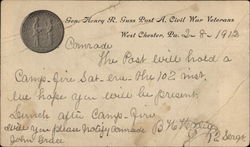 Gen. Henry R. Guss Post A. Civil War Veterans
West Chester, Pa. 2-8-1913
Comrade
The Post will hold a
Camp-fire Sat-eve. The 10th inst.
We hope you will be present
Lunch after Camp-fire
Will you please notify Comrade
John Grace